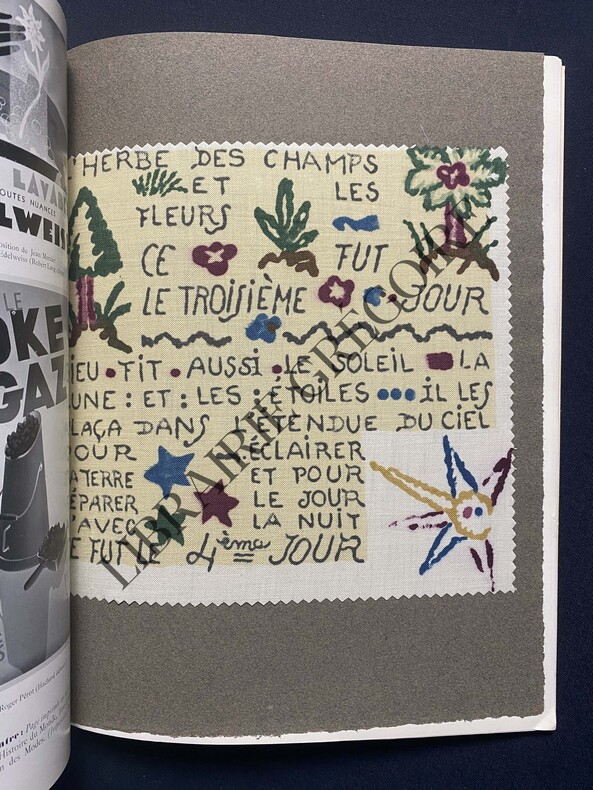 LAVAB
TOUTES NUANCES
ELWEIS
position de Jean Mercier
Edelweiss (Robert Lang
LE
OKE
GAZ
Roger Pérot (Hachard
Page imprimée
Histoire du Monde
des Modes.
'HERBE DES CHAMPS
ET LES
FLEURS
CE FUT
LE TROISIÈME JOUR
IEU • FIT • AUSSI • LE SOLEIL LA
UNE : ET : LES : ÉTOILES ••• IL LES
LAÇA DANS L'ÉTENDUE DU CIEL
POUR ÉCLAIRER
A TERRE ET POUR
ÉPARER LE JOUR
D'AVEC LA NUIT
E FUT LE 4ème JOUR
LIBRAIRIE GRÉGOIRE